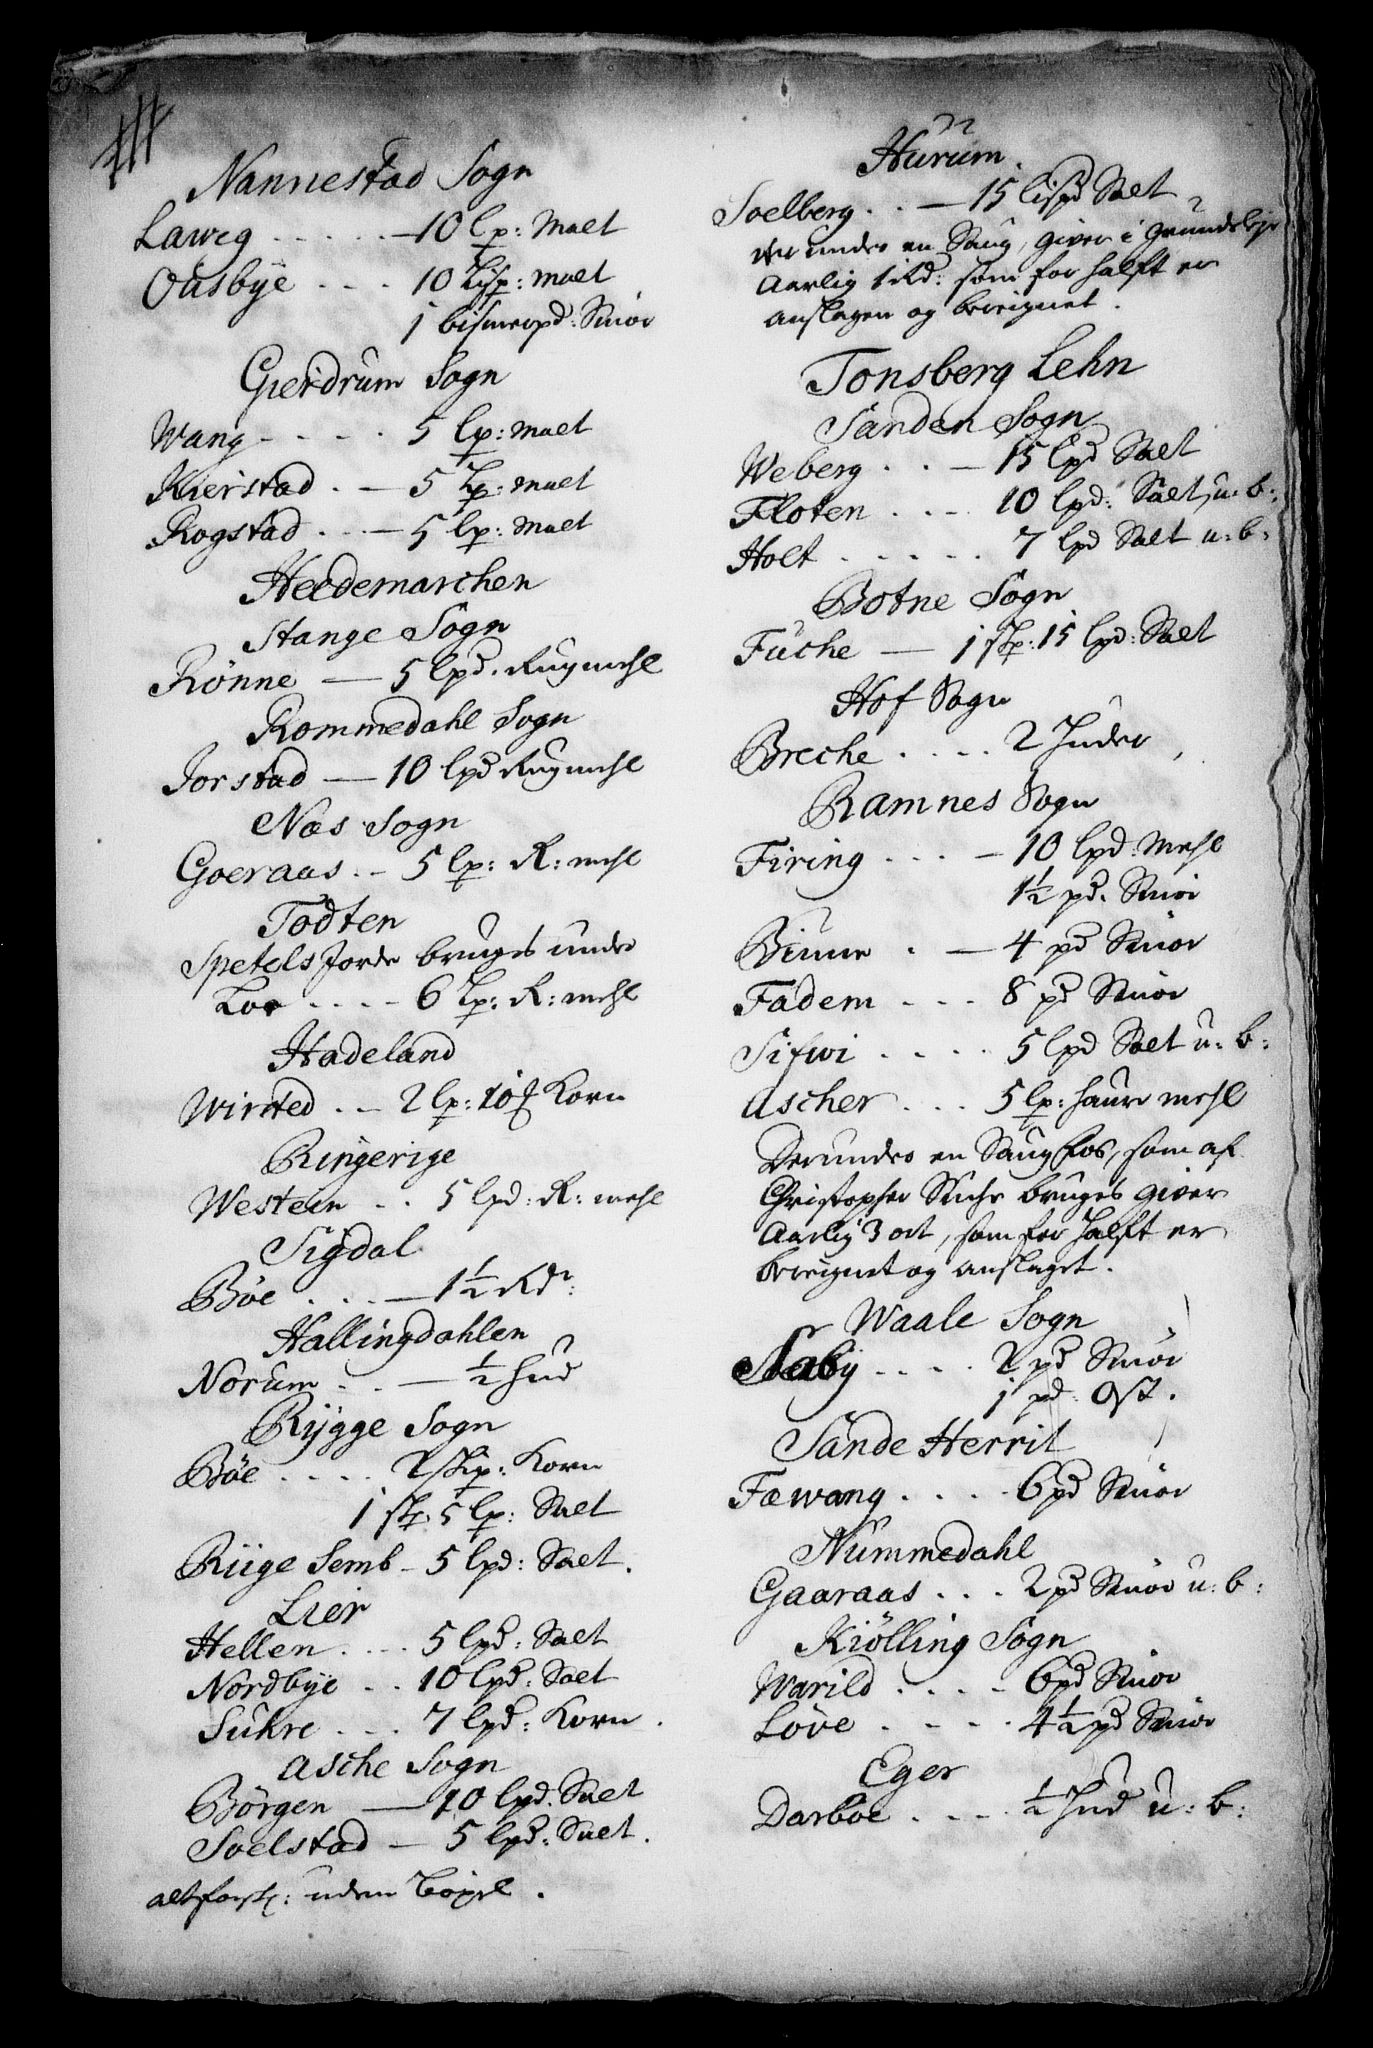 Nannestad Sogn
Laweg . . . . . — 10 lp: Malt
Ousbÿe . . . 10 Lisp: malt
1 bismerpd: Smör
Gierdrum Sogn
Wang - . . . . 5 lp: malt
Kierstad . — 5 Lp: malt
Rogstad . . . — 5 lp: malt
Heedemarchen
Stange Sogn
Rönne — 5 lpd. Rugmehl
Rommedahl Sogn
Jorstad — 10 lpd Rugmehl
Næs Sogn
Goeraas . . — 5 lp: R: mehl
Todten
Spetels Jorde bruges under
Loe . . . . — 6 Lp: R: mehl
Hadeland
Wirsted . . — 2 lp: 10 ℔ Korn
Ringerige
Westein - . . 5 lpd: R: mehl
Sigdal
Böe . . . . — 1½ Rdr:
Hallingdahlen
Norum . . . — ½ hud
Rÿgge Sogn
Böe . . . . 2 Skp: Korn
1 skp. 5 lp: Salt
Riige Semb - 5 lpd: Salt.
Lier
Hellen . . . . 5 lpd: Salt
Nordbÿe . . 10 lpd: Salt
Suhre . . . . 7 lpd: Korn .
Asche Sogn
Börgen — 10 lpd. Salt
Soelstad — 5 lpd: Salt.
alt forsk: uden böxel.
Hurum.
Soelberg . . . — 15 lispd Salt
der under en Saug, giver i grundeleje
Aarlig 1 Rd: som for halft er
anslagen og bereignet.
Tonsberg Lehn
Sanden Sogn
Weberg . . . — 15 lpd Salt
Floten . . . . 10 lpd: Salt, u: b:
Holt . . . . . . 7 lpd Salt u: b:
Botne Sogn
Fuche — 1 skp: 15 lpd: Salt
Hof Sogn
Breche . . . . 2 Huder
Ramnes Sogn
Firing . . . — 10 lpd: Mehl
1½ pd. Smör
Biune . — 4 pd Smör
Fadem . . . 8 pd Smör
Sifwi . . . . 5 lpd Salt u: b:
Ascher . . . 5 lp: haure mehl
Derunder en Saug fos, som af
Christopher Stuhr bruges giver
Aarlig 3 ort, som for halft er
bereignet og anslaget.
Waale Sogn
Staby . . . . 2 pd Smör
1 pd. Ost.
Sande Herrit
Fæwang . . . . 6 pd Smör
Nummedahl
Gaaraas . . . 2 pd Smör u: b:
Kiölling Sogn
Warild . . . . 6 pd Smör
Löve . . . . . 4½ pd Smör
Eger
Darboe . . . . ½ Hud u: b: